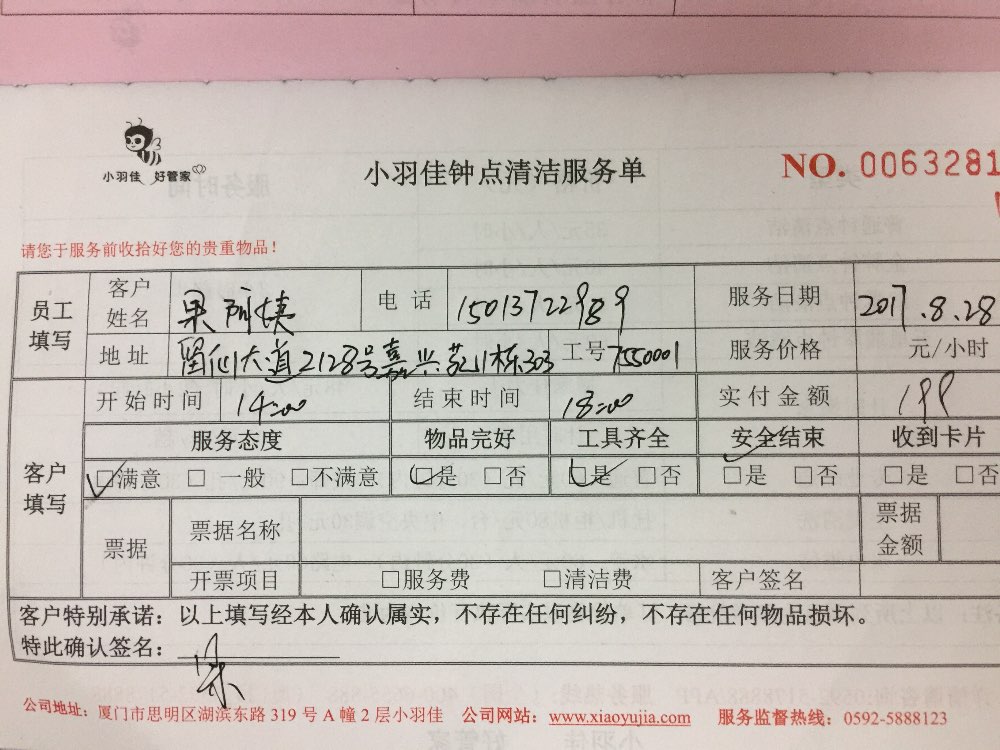 小羽佳 好管家
小羽佳钟点清洁服务单
NO. 0063281
请您于服务前收拾好您的贵重物品！
员工填写 客户姓名 电话 15013722989 服务日期 2017.8.28
地址 留仙大道2128号嘉兴苑11栋303 工号 7550001 服务价格 元/小时
客户填写 开始时间 14:00 结束时间 18:00 实付金额 199
服务态度 物品完好 工具齐全 安全结束 收到卡片
□满意 □一般 □不满意 □是 □否 □是 □否 □是 □否 □是 □否
票据 票据名称 票据金额
开票项目 □服务费 □清洁费 客户签名
客户特别承诺：以上填写经本人确认属实，不存在任何纠纷，不存在任何物品损坏。
特此确认签名：
公司地址：厦门市思明区湖滨东路 319 号 A 幢 2 层小羽佳 公司网站：www.xiaoyujia.com 服务监督热线：0592-5888123